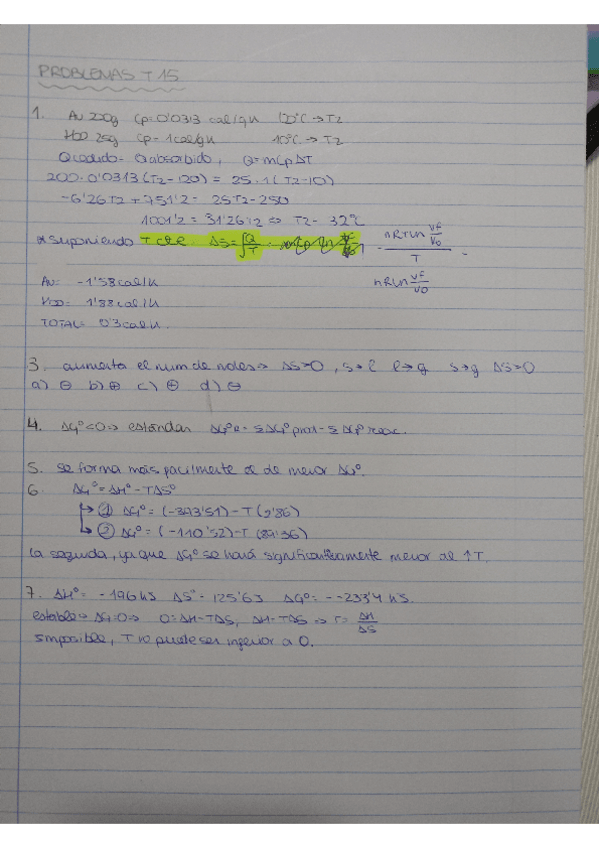 PROBLEMAS T 15
1. Au 200g Cp=0'0313 cal/gK 120°C → T2
H2O 25g Cp = 1cal/gK 10°C → T2
Qcedido = Qabsorbido, Q=mCpΔT
200·0'0313(T2-120) = 25·1(T2-10)
-6'26T2 + 751'2 = 25T2-250
1001'2 = 31'26T2 ⇒ T2 = 32°C
* suponiendo T cte ΔS=∫Q/T = nRTLn Vf/V0 / T =
nRLn Vf/V0
Au = -1'58 cal/K
H2O = 1'88 cal/K
TOTAL = 0'3 cal/K.
3. aumenta el num de moles → ΔS>0, s→l l→g s→g ΔS>0
a) ⊖ b) ⊕ c) ⊕ d) ⊖
4. ΔG°<0 → estándar ΔG°R = ΣΔG°prod - ΣΔG°reac.
5. se forma más facilmente el de menor ΔG°.
6. ΔG° = ΔH° - TΔS°
↳ ① ΔG° = (-393'51) - T(2'86)
↳ ② ΔG° = (-110'52) - T(89'36)
la segunda, ya que ΔG° se hará significativamente menor al ↑T.
7. ΔH° = -196 kJ ΔS° = 125'6J ΔG° = -233'4 kJ.
estable → ΔG=0 ⇒ 0=ΔH-TΔS, ΔH=TΔS ⇒ T= ΔH/ΔS
imposible, T no puede ser inferior a 0.